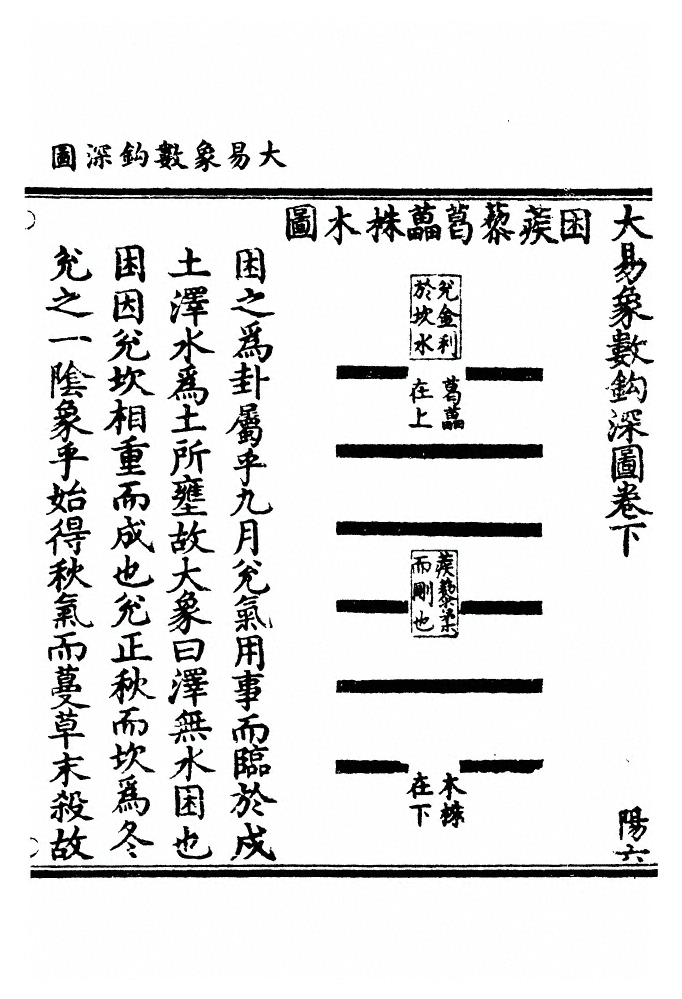 大易象數鈎深圖
大易象數鈎深圖卷下
陽六
困蒺藜葛藟株木圖
兌金利
於坎水
葛藟
在上
蒺藜柔
而剛也
木株
在下
困之為卦屬乎九月兌氣用事而臨於戌
土澤水為土所壅故大象曰澤無水困也
困因兌坎相重而成也兌正秋而坎為冬
兌之一陰象乎始得秋氣而蔓草未殺故